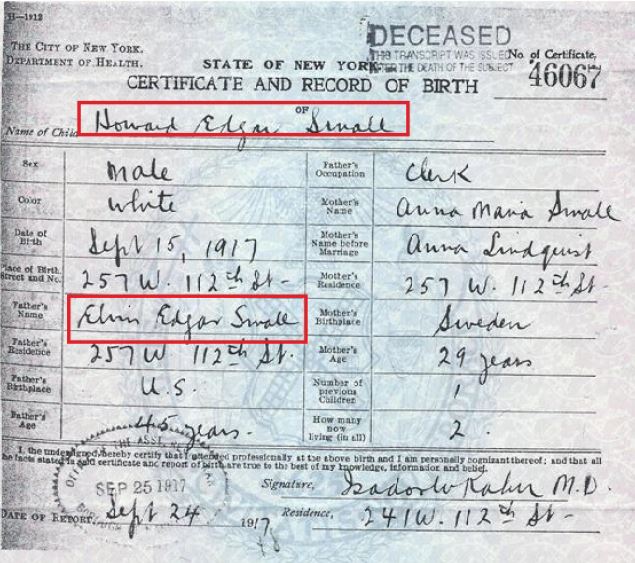 H—1912
DECEASED
THE CITY OF NEW YORK.
THIS TRANSCRIPT WAS ISSUED
No. of Certificate,
DEPARTMENT OF HEALTH.
STATE OF NEW YORK.
AFTER THE DEATH OF THE SUBJECT
46067
CERTIFICATE AND RECORD OF BIRTH
OF
Name of Child Howard Edgar Small
Sex Male Father's Occupation Clerk
Color White Mother's Name Anna Maria Small
Date of Birth Sept 15, 1917 Mother's Name before Marriage Anna Lindquist
Place of Birth, Street and No. 257 W. 112th St- Mother's Residence 257 W. 112th St-
Father's Name Elvin Edgar Small Mother's Birthplace Sweden
Father's Residence 257 W 112th St. Mother's Age 29 years
Father's Birthplace U.S. Number of previous Children 1
Father's Age 45 years. How many now living (in all) 2
I, the undersigned, hereby certify that I attended professionally at the above birth and I am personally cognizant thereof; and that all
the facts stated in said certificate and report of birth are true to the best of my knowledge, information and belief.
SEP 25 1917 Signature, Isador W Kahn M.D.
DATE OF REPORT, Sept 24 1917 Residence, 241 W. 112th St-